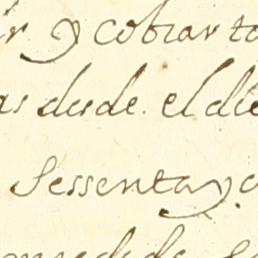 ir y cobrar to
as desde el die
sessenta y o